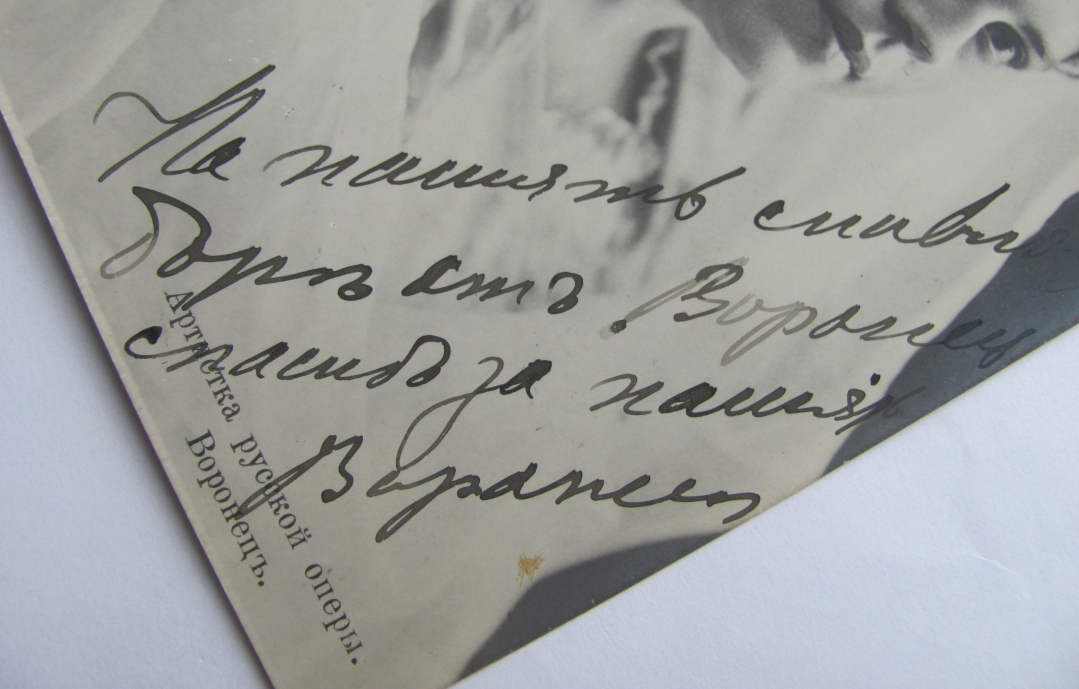 На память славн
отъ Воронец
спасибо за память
Воронец
Артистка русской оперы.
Воронецъ.